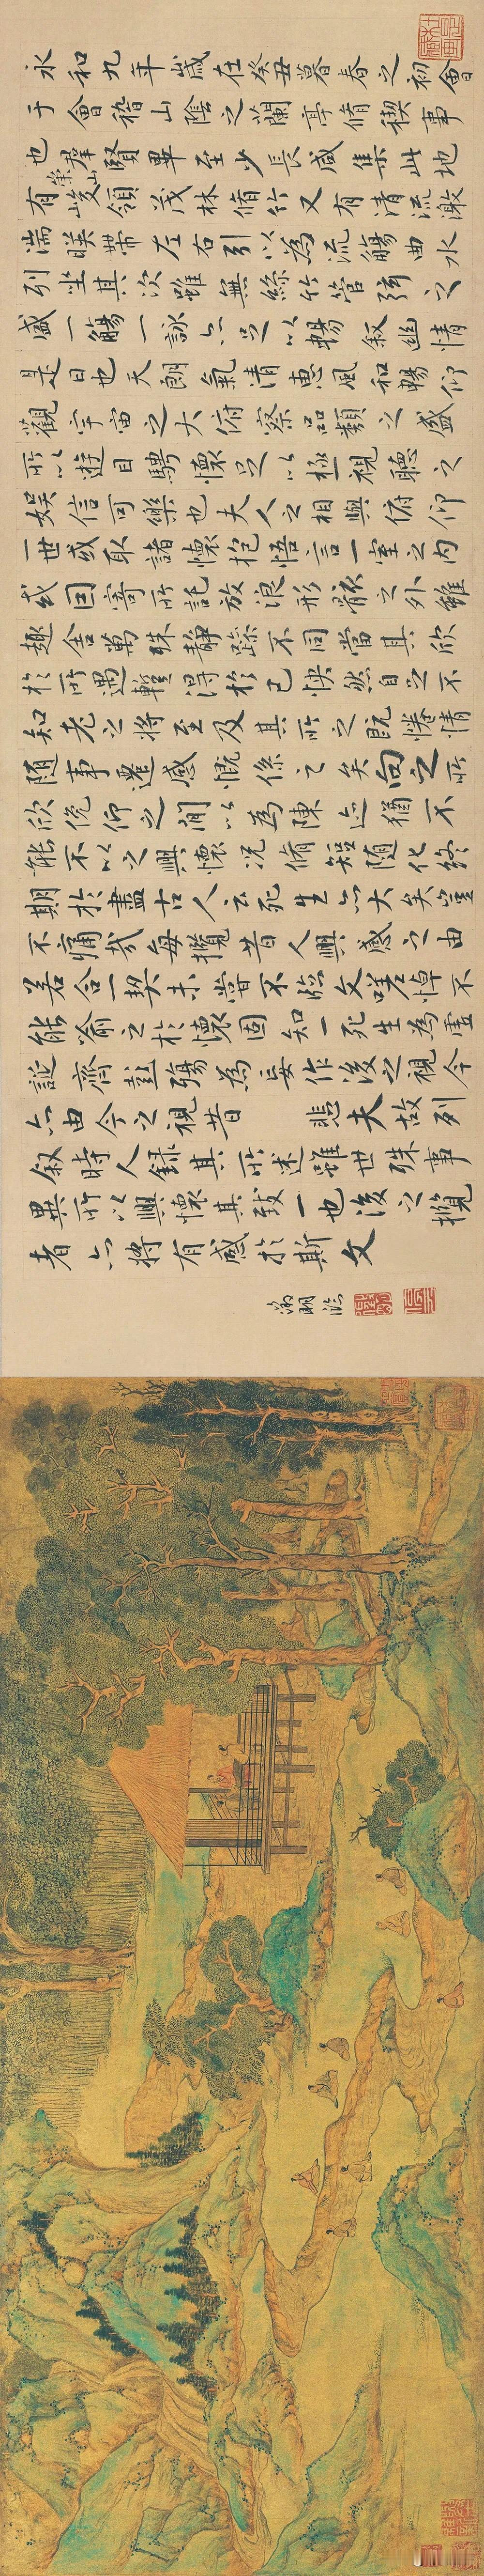 永和九年歲在癸丑暮春之初會
于會稽山陰之蘭亭脩稧事
也群賢畢至少長咸集此地
有崇山峻領茂林脩竹又有清流激
湍暎帶左右引以為流觴曲水
列坐其次雖無絲竹管弦之
盛一觴一詠亦足以暢叙幽情
是日也天朗氣清惠風和暢仰
觀宇宙之大俯察品類之盛
所以遊目騁懷足以極視聽之
娛信可樂也夫人之相與俯仰
一世或取諸懷抱悟言一室之内
或因寄所託放浪形骸之外雖
趣舍萬殊靜躁不同當其欣
於所遇蹔得於己怏然自足不
知老之將至及其所之既惓情
隨事遷感慨係之矣向之所
欣俛仰之間以為陳迹猶不
能不以之興懷況脩短隨化終
期於盡古人云死生亦大矣豈
不痛哉每攬昔人興感之由
若合一契未嘗不臨文嗟悼不
能喻之於懷固知一死生為虛
誕齊彭殤為妄作後之視今
亦由今之視昔悲夫故列
叙時人錄其所述雖世殊事
異所以興懷其致一也後之攬
者亦將有感於斯文
徵明臨